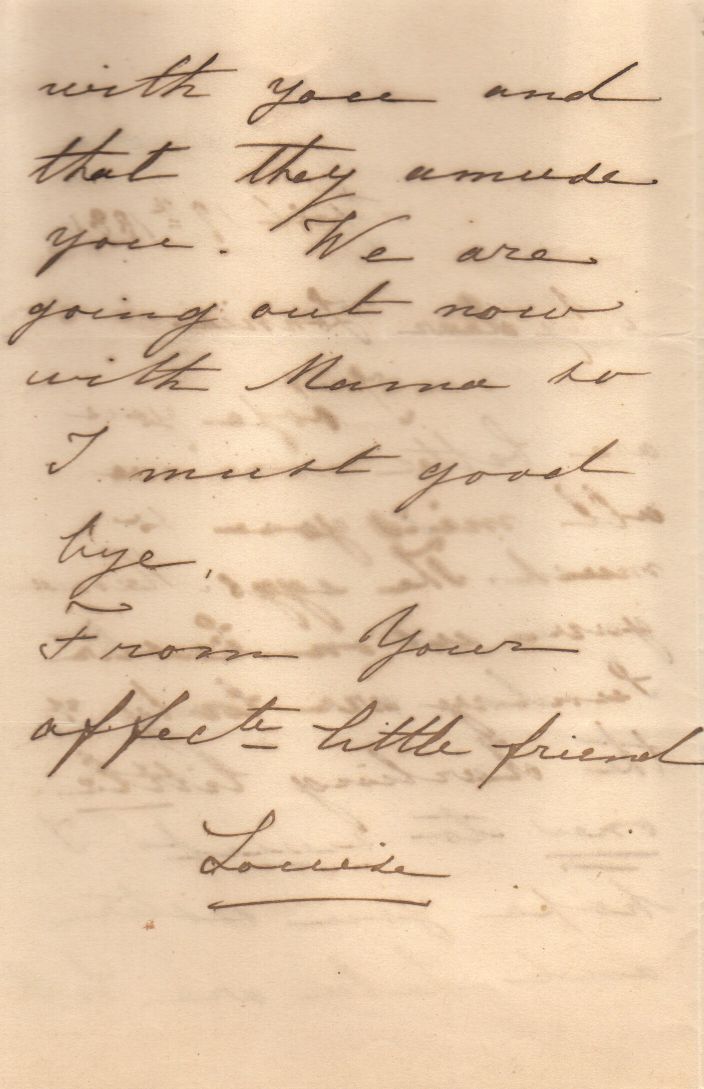 with you and
that they amuse
you. We are
going out now
with Mama so
I must good
bye,
From Your
affecte little friend
Louise